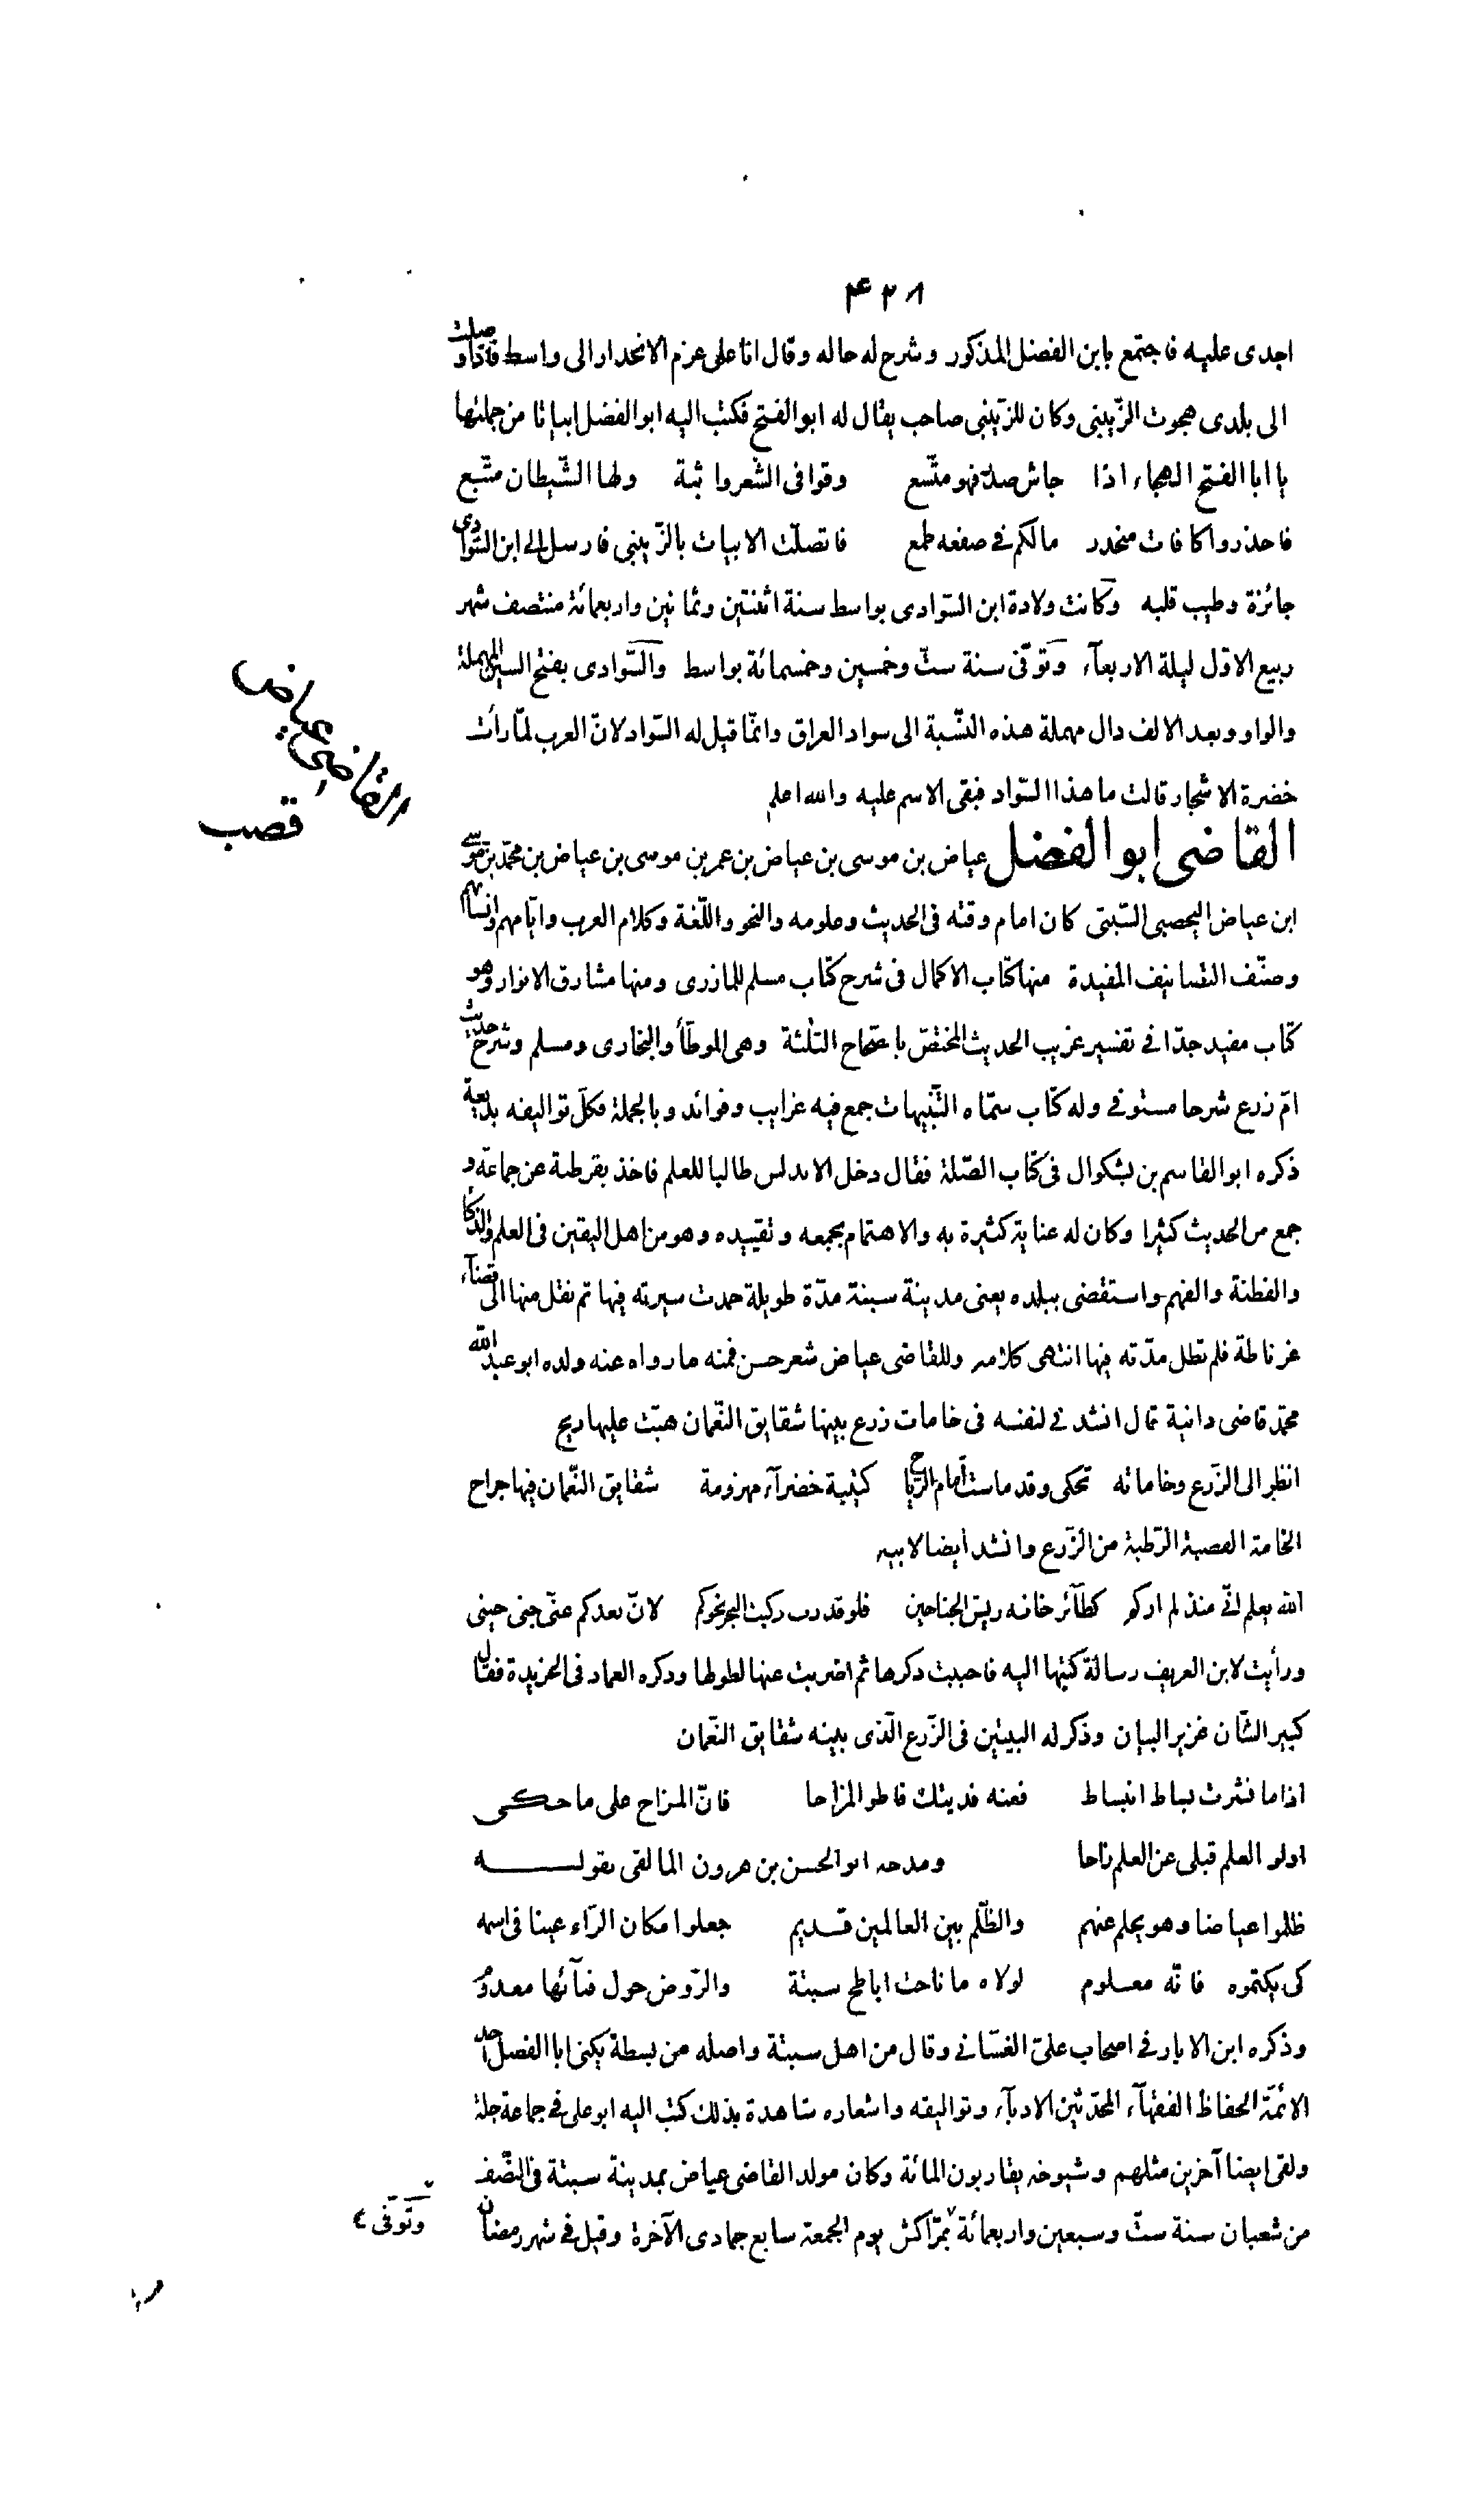 ۴۲۸
اجدى عليه فاجتمع بابن الفضل المذكور وشرح له حاله وقال انا على عزم الانحدار الى واسط فاذا وصلت
الى بلدى هجوت الزّينبى وكان للزّينبى صاحب يقال له ابو الفتح فكتب اليه ابو الفضل ابياتا من جملتها
يا ابا الفتح الهجاء اذا جاش صدر فهو متّسع وقوافى الشّعر واثبة ولها الشّيطان متّبع
فاحذروا كافات منحدر مالكم فى صفعه طمع فاتصلّت الابيات بالزّينبى فارسل الى ابن السّوادى
جائزة وطيب قلبه وكانت ولادة ابن السّوادى بواسط سنة اثنتين وثمانين واربعمائة منتصف شهر
ربيع الاوّل ليلة الاربعآء وتوفّى سنة ستّ وخمسين وخمسمائة بواسط والسّوادى بفتح السين المهملة
والواو وبعد الالف دال مهملة هذه النسّبة الى سواد العراق وانّما قيل له السّواد لانّ العرب لمّا رأت
خضرة الاشجار قالت ما هذا السّواد فبقى الاسم عليه والله اعلم
القاضى عياض
قصب
القاضى ابو الفضل عياض بن موسى بن عياض بن عمر بن موسى بن عياض بن محمّد بن موسى
ابن عياض اليحصبى السّبتى كان امام وقته فى الحديث وعلومه والنحو واللّغة وكلام العرب وايّامهم وانسابهم
وصنّف التصانيف المفيدة منها كتاب الاكمال فى شرح كتاب مسلم للمازرى ومنها مشارق الانوار وهو
كتاب مفيد جدّا فى تفسير غريب الحديث المختصّ باصحاح الثلثة وهى الموطّأ والبخارى ومسلم وشرح حديث
امّ زرع شرحا مستوفى وله كتاب سمّاه التّنبيهات جمع فيه غرايب وفوائد وبالجملة فكلّ تواليفه بديعة
ذكره ابو القاسم بن بشكوال فى كتاب الصّلة فقال دخل الاندلس طالبا للعلم فاخذ بقرطبة عن جماعة و
جمع من الحديث كثيرا وكان له عناية كثيرة به والاهتمام بجمعه وتقييده وهو من اهل اليقين فى العلم والذكا
والفطنة والفهم واستقضى ببلده يعنى مدينة سبتة مدّة طويلة حمدت سيرته فيها ثم نقل منها الى قضآء
غرناطة فلم تطل مدّته فيها انتهى كلامه وللقاضى عياض شعر حسن فمنه ما رواه عنه ولده ابو عبد الله
محمّد قاضى دانية قال انشدنى لنفسه فى خامات زرع بينها شقايق النّعمان هبّت عليها ريح
انظر الى الزّرع وخاماته تحكى وقد ماست أمام الرّياح كتيبة خضرآء مهزومة شقايق النّعمان فيها جراح
الخامة القصبة الرّطبة من الزّرع وانشد ايضا لابيه
الله يعلم انّى منذ لم اركم كطآئر خانه ريش الجناحين فلو قدرت ركبت البحر نحوكم لانّ بعدكم عنّى جنى حينى
ورأيت لابن العريف رسالة كتبها اليه فاحببت ذكرها ثم اضربت عنها لطولها وذكره العماد فى الخريدة فقال
كبير الشّان غزير البيان وذكر له البيتين فى الزّرع الّذى بينه شقايق النّعمان
اذا ما نشرت بساط انبساط فعنه فديتك فاطو المزاحا فانّ المزاح على ما حكى
اولو العلم قبلى عن العلم زاحا ومدحه ابو الحسن بن هرون المالقى بقوله
ظلموا عياضا وهو يحلم عنهم والظّلم بين العالمين قديم جعلوا مكان الرّاء عينا فى اسمه
كى يكتموه فانّه معلوم لولاه ما ناحت اباطح سبتة والرّوض حول فنآئها معدوم
وذكره ابن الابار فى اصحاب علىّ الغسّانى وقال من اهل سبتة واصله من بسطة يكنى ابا الفضل احد
الائمّة الحفاظ الفقهآء المحدّثين الادبآء وتواليفه واشعاره شاهدة بذلك كتب اليه ابو على فى جماعة جلة
ولقى ايضا آخرين مثلهم وشيوخه يقاربون المائة وكان مولد القاضى عياض بمدينة سبتة فى النّصف
من شعبان سنة ستّ وسبعين واربعمائة بمرّاكش يوم الجمعة سابع جمادى الآخرة وقيل فى شهر رمضان
وتوفّى ٤